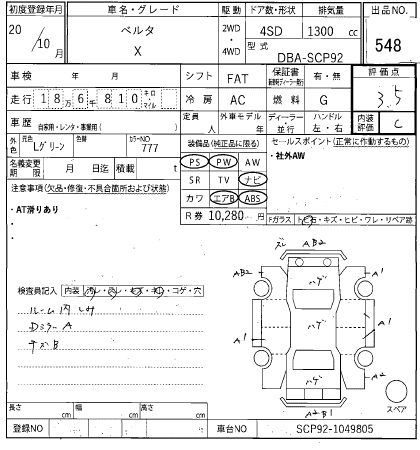 初度登録年月 車名・グレード 駆動 ドア数・形状 排気量 出品NO.
20/10月 ベルタ X 2WD・4WD 4SD 1300 cc 548
型式 DBA-SCP92
車検 年 月 シフト FAT 保証書 有・無 評価点
走行 186千810 キロ マイル 冷房 AC 燃料 G 3.5
車歴 自家用・レンタ・事業用( ) 定員 人 外車モデル 年 ディーラー・並行 ハンドル 左・右 内装評価 C
外色 元色 Lグリーン 色替 カラーNO 777 装備品(純正品に限る) セールスポイント(正常に作動するもの)
名義変更期限 月 日迄 積載 t PS PW AW ・社外AW
注意事項(欠品・修復・不具合箇所および状態) SR TV ナビ
・AT滑りあり カワ エアB ABS
・ R券 10,280円
Fガラス トビ石・キズ・ヒビ・ワレ・リペア跡
検査員記入 内装(汚レ・スレ・キズ・切レ・コゲ・穴)
ルーム内しみ
DミラーA
AB2
AB2 A1
ハゲ
A1 A1
ハゲ
A2
ハゲ
A2B1
スペア
長さ cm 幅 cm 高さ cm
登録NO 車台NO SCP92-1049805